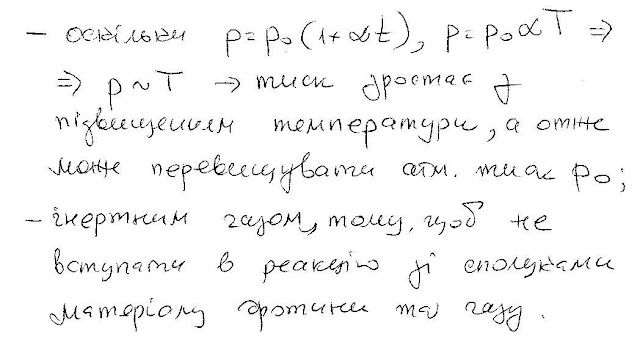 - оскільки p = p₀(1+αt), p = p₀αT ⇒
⇒ p ~ T → тиск зростає з
підвищенням температури, а отже
може перевищувати атм. тиск p₀;
- інертним газом, тому, щоб не
вступати в реакцію зі сполуками
матеріалу та газу.